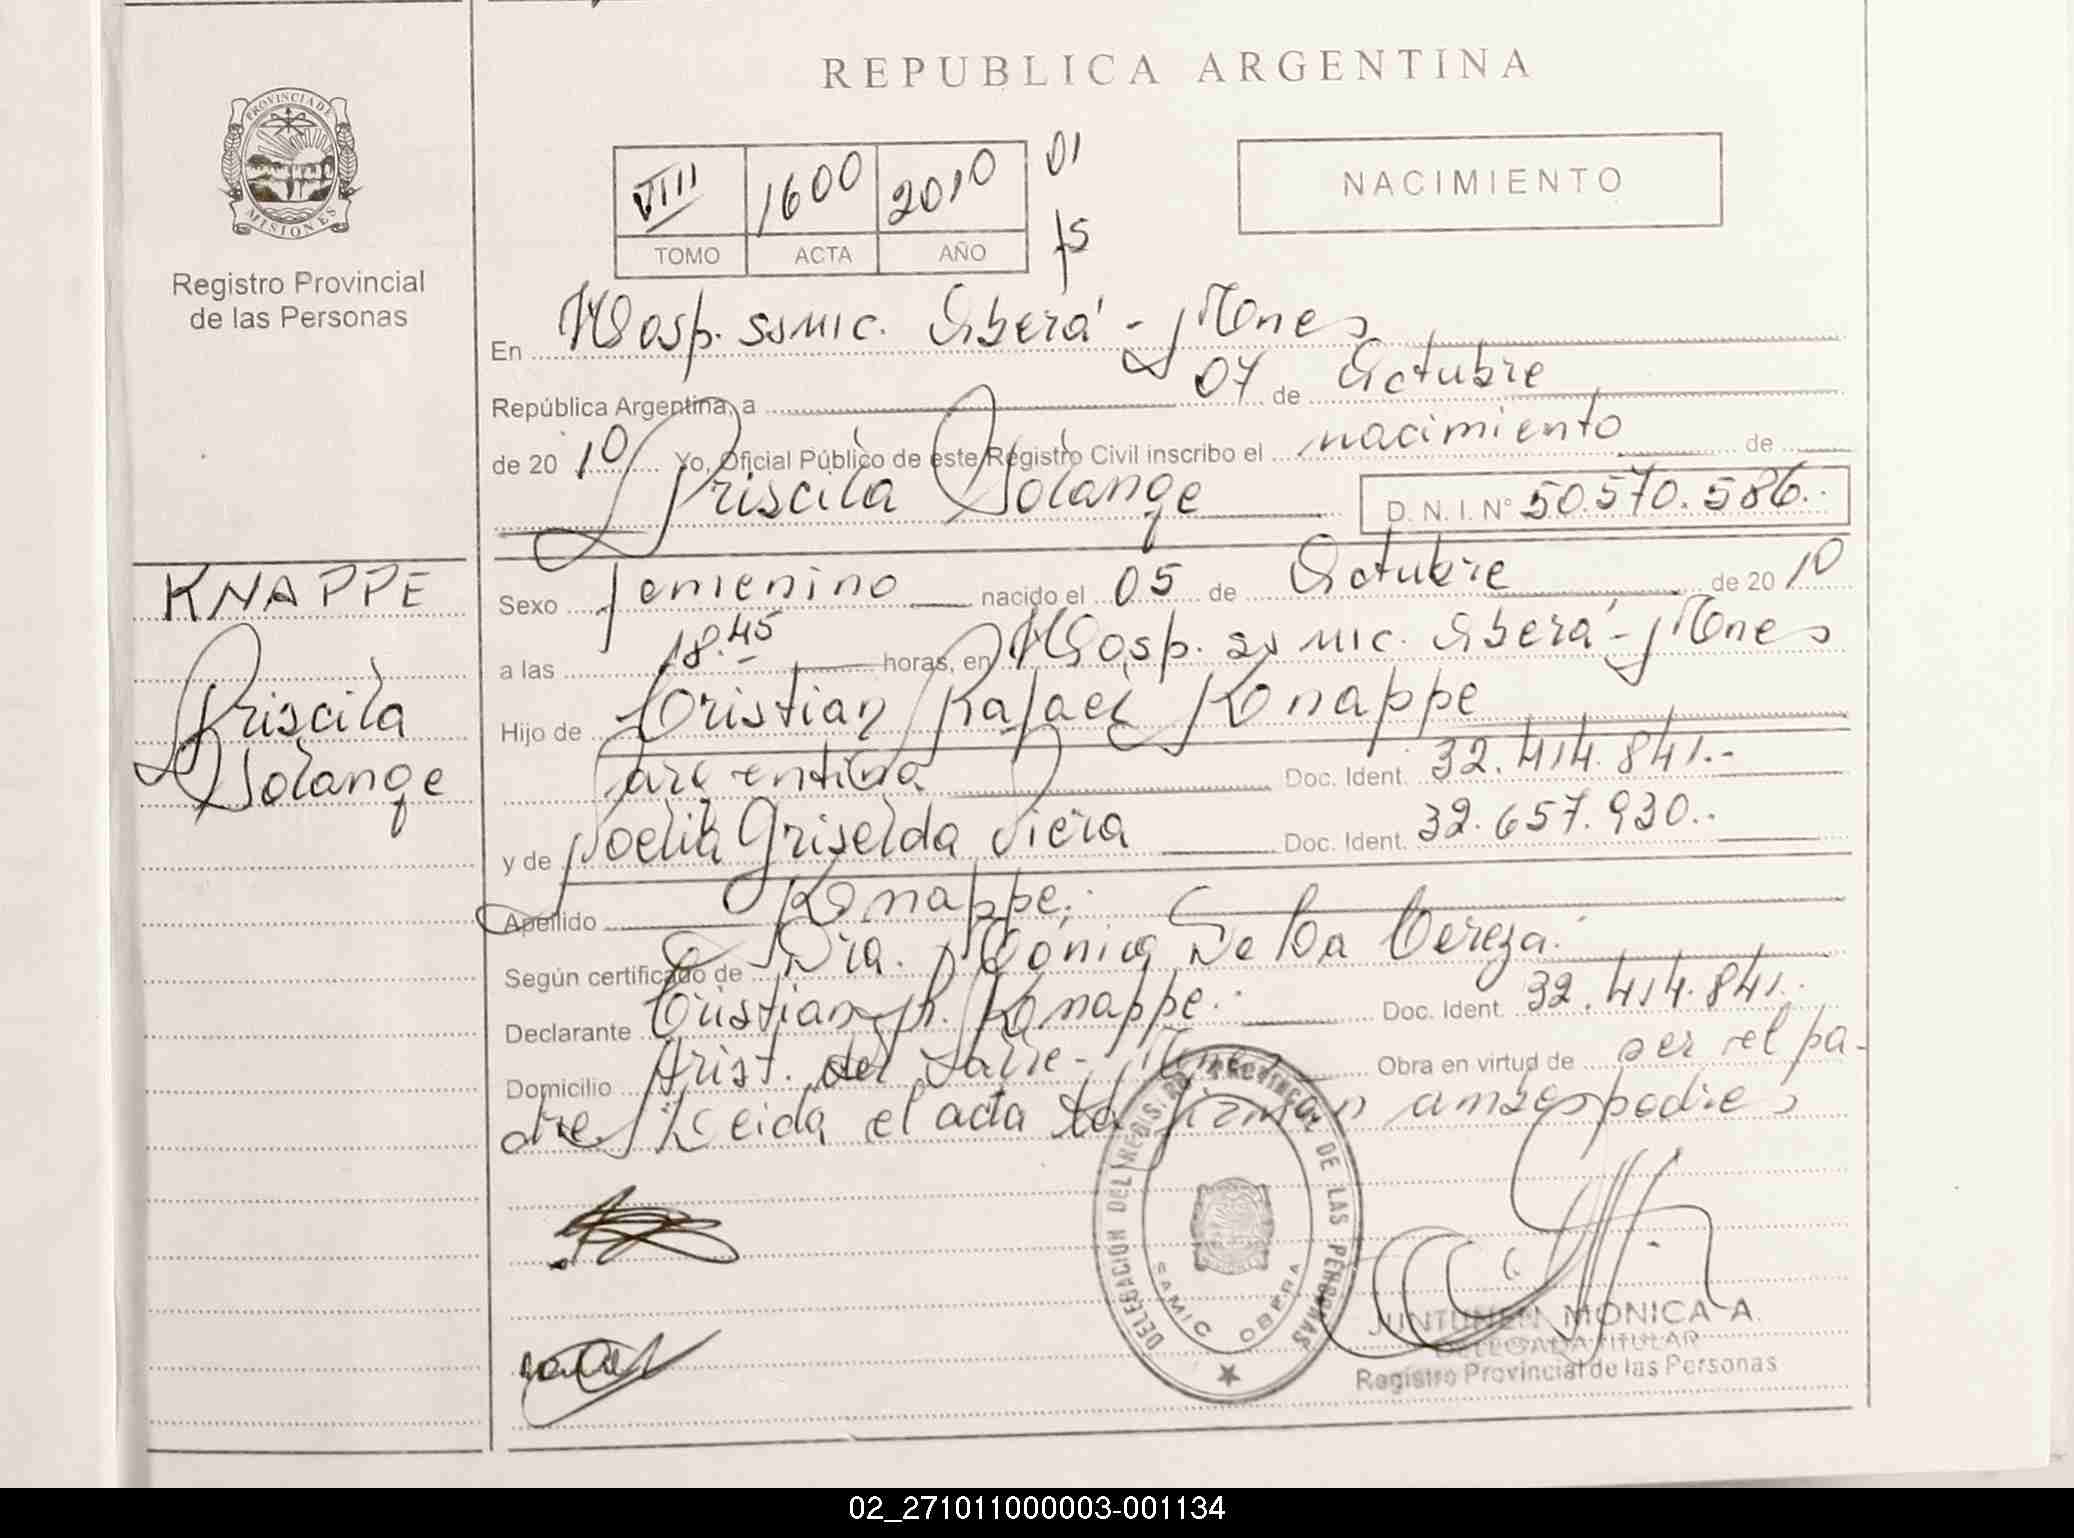 REPUBLICA ARGENTINA
PROVINCIA DE
MISIONES
Registro Provincial
de las Personas
VIII 1600 2010 01
TOMO ACTA AÑO 15
NACIMIENTO
En Hosp. SAMIC. Oberá - Mnes
República Argentina, a 07 de Octubre
de 20 10 Yo, Oficial Público de este Registro Civil inscribo el nacimiento de
Priscila Solange D. N. I. N° 50.570.586.
KNAPPE
Priscila
Solange
Sexo femenino nacido el 05 de Octubre de 20 10
a las 18.45 horas, en Hosp. SAMIC. Oberá - Mnes
Hijo de Cristian Rafael Knappe
argentina Doc. Ident. 32.414.841.-
y de Noelia Griselda Viera Doc. Ident. 32.657.930.
Apellido Knappe.
Según certificado de Dra. Mónica De La
Declarante Cristian R. Knappe. Doc. Ident. 32.414.841.
Domicilio Arist. del Valle - Mnes Obra en virtud de ser el pa-
dre. Leida el acta la firman ambos padres
DELEGACION DEL REGIS. PROVINCIAL DE LAS PERSONAS
SAMIC OBERA
JUNTUNEN MONICA A.
DELEGADA TITULAR
Registro Provincial de las Personas
02_271011000003-001134